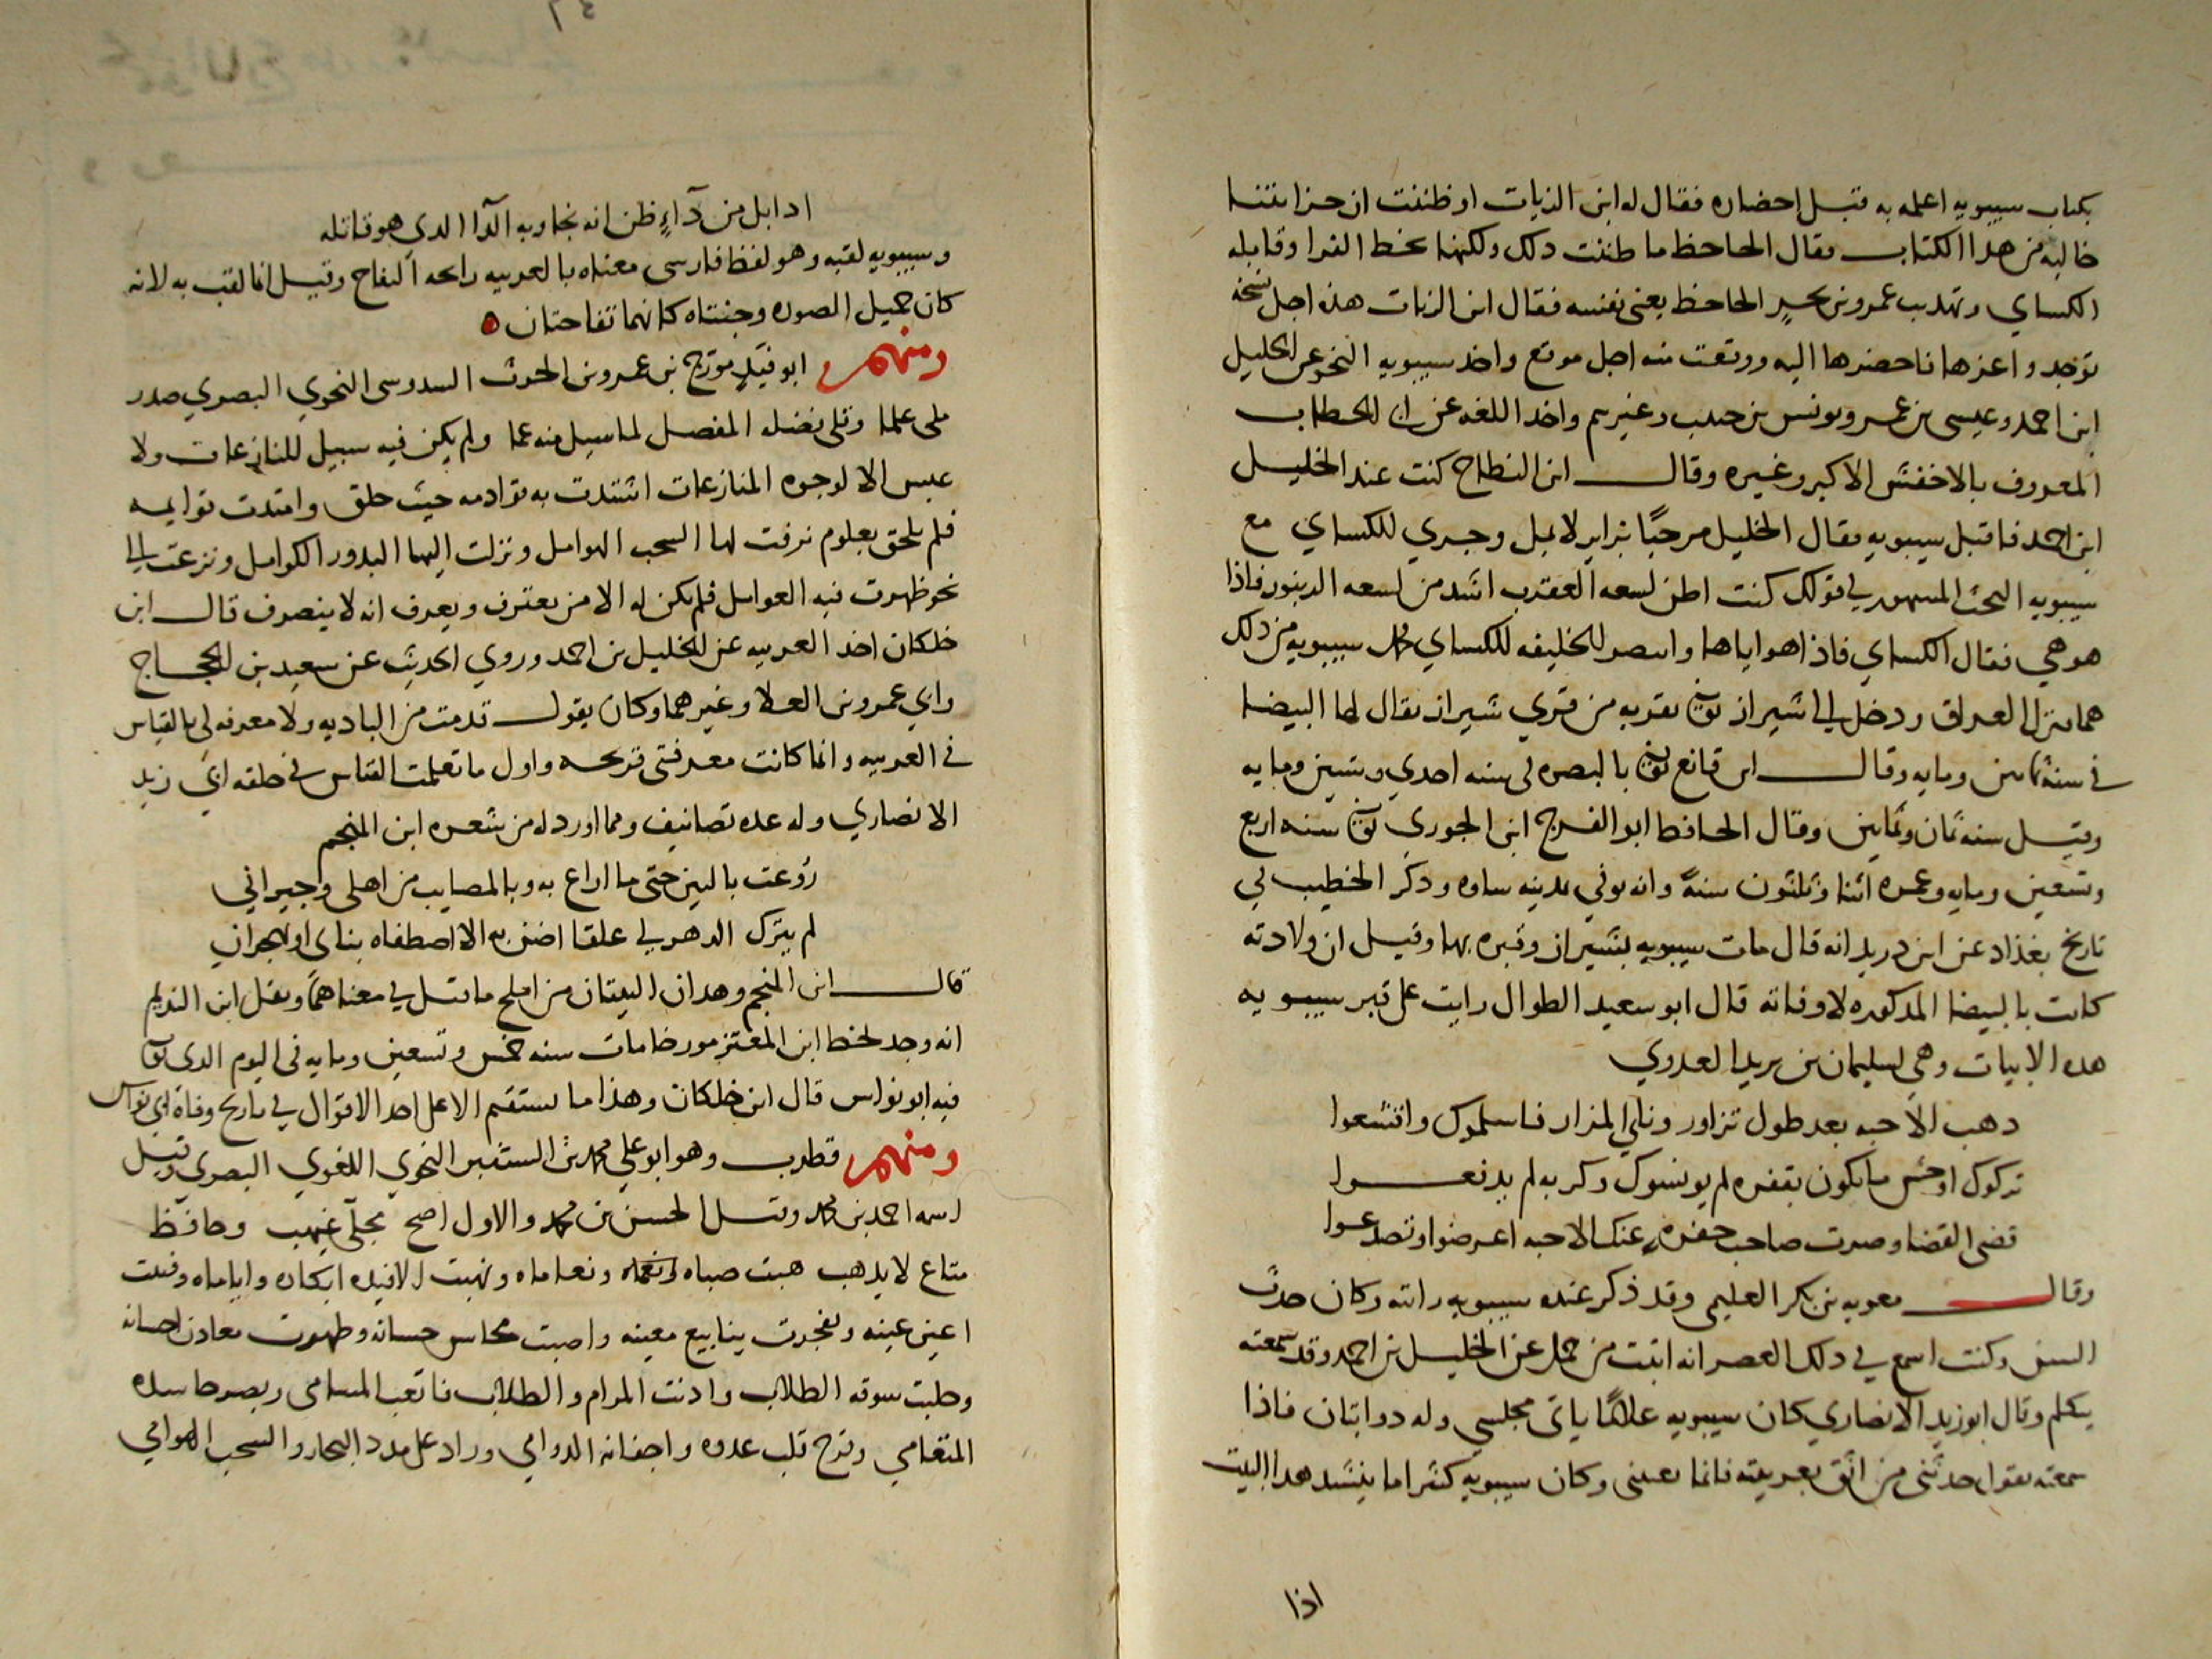 بكتاب سيبويه اعلمه به قبل احضاره فقال له ابن الزيات اوظننت ان خزانتنا
خاليه من هدا الكتاب فقال الجاحظ ما ظننت دلك ولكنها بخط الفرا وقابله
الكساي وتهديب عمرو بن بحرٍ الجاحظ يعنى نفسه فقال ابن الزيات هذه اجل نسخه
توجد واعزها فاحضرها اليه ووقعت منه اجل موقع واخد سيبويه النحو عن الخليل
ابن احمد وعيسى بن عمر ويونس بن حبيب وغيرهم واخد اللغه عن ابي الخطاب
المعروف بالاخفش الاكبر وغيره وقال ابن النطاح كنت عند الخليل
ابن احمد فاقبل سيبويه فقال الخليل مرحبًا بزاير لا يمل وجري للكساي مع
سيبويه البحث المشهور في قولك كنت اظن لسعه العقرب اشد من لسعه الزنبور فاذا
هو هي فقال الكساي فاذا هو اياها وانتصر الخليفه للكساي سيبويه من دلك
هما بترك العراق ودخل الى شيراز توفي بقريه من قري شيراز يقال لها البيضا
في سنة ثمانين ومايه وقال ابن قانع توفي بالبصره في سنه احدي وستين ومايه
وقيل سنه ثمان وثمانين وقال الحافظ ابو الفرج ابن الجوزي توفي سنه اربع
وتسعين ومايه وعمره اثنا وثلثون سنةً وانه توفي بمدينه ساوه ودكر الخطيب في
تاريخ بغداد عن ابن دريد انه قال مات سيبويه بشيراز وقبره بها وقيل ان ولادته
كانت بالبيضا المدكوره لا وفاته قال ابو سعيد الطوال رايت على قبر سيبويه
هده الابيات وهي لسليمان بن يزيد العدوي
دهب الاحبه بعد طول تزاور ونأي المزار فاسلموك واقشعوا
تركوك اوحش ما تكون بقفره لم يونسوك وكربه لم يدفعوا
قضى القضا وصرت صاحب حفرهٍ عنك الاحبه اعرضوا وتصدعوا
وقال معويه بن بكر العليمي وقد ذكر عنده سيبويه رايته وكان حدث
السن وكنت اسمع في دلك العصر انه اثبت من حمل عن الخليل بن احمد وقد سمعته
يتكلم وقال ابو زيد الانصاري كان سيبويه غلامًا ياتى مجلسي وله دوابتان فاذا
سمعته يقول حدثنى من اثق بعربيته فانما يعنينى وكان سيبويه كثيرا ما ينشد هدا البيت
اذا
ادا بل من دآءٍ ظن انه نجا وبه الدآا الدي هو قاتله
وسيبويه لقبه وهو لفظ فارسى معناه بالعربيه رايحه التفاح وقيل انما لقب به لانه
كان جميل الصوره وجنتاه كانهما تفاحتان
ومنهم ابو فيد مورج بن عمرو بن الحرث السدوسى النحوي البصري صدر
ملى علما وتلى بفضله المفصل لما سيل منه عما ولم يكن فيه سبيل للنازعات ولا
عبس الا لوجوه المنازعات اشتدت به قوادمه حيث حلق وامتدت قوايمه
فلم يلحق بعلوم نزفت لها السحب الهوامل ونزلت اليها البدور الكوامل ونزعت الى
نحو ظهرت فيه العوامل فلم يكن له الا من يعترف ويعرف انه لا ينصرف قال ابن
خلكان اخد العربيه عن الخليل بن احمد وروي الحديث عن سعيد بن الحجاج
وابي عمرو بن العلا وغيرهما وكان يقول قدمت من الباديه ولا معرفه لي بالقياس
في العربيه وانما كانت معرفتى قريحه واول ما تعلمت القياس في حلقه ابي زيد
الانصاري وله عده تصانيف ومما اورد له من شعره ابن المنجم
رُوّعت بالبين حتى ما اراع به وبالمصايب من اهلي وجيراني
لم يترك الدهر لي علقا اضن به الا اصطفاه بناى او بهجران
قال ابن المنجم وهدان البيتان من املح ما قيل في معناهما ونقل ابن النديم
انه وجد بخط ابن المعتز مورخا مات سنه خمس وتسعين ومايه في اليوم الدى توفي
فيه ابو نواس قال ابن خلكان وهذا ما يستقيم الا على احد الاقوال في تاريخ وفاة ابي نواس
ومنهم قطرب وهو ابو علي محمد بن المستنير النحوي اللغوي البصري وقيل
اسمه احمد بن محمد وقيل الحسن بن محمد والاول اصح مجلّى غيهب وحافظ
متاع لا يدهب هبت صباه ونعاماه ونهبت الافيده ابكاره واياماه وفيت
اعين عينه وتفجرت ينابيع معينه واصبت محاسن حسانه وظهرت معادن احسانه
وجلبت سوقه الطلاب وادنت المرام والطلاب فاتعب المسامى وبصر حاسده
المتعامي وقرح قلب عدوه واجفانه الدوامي وزاد على مدد البحار والسحب الهوامي